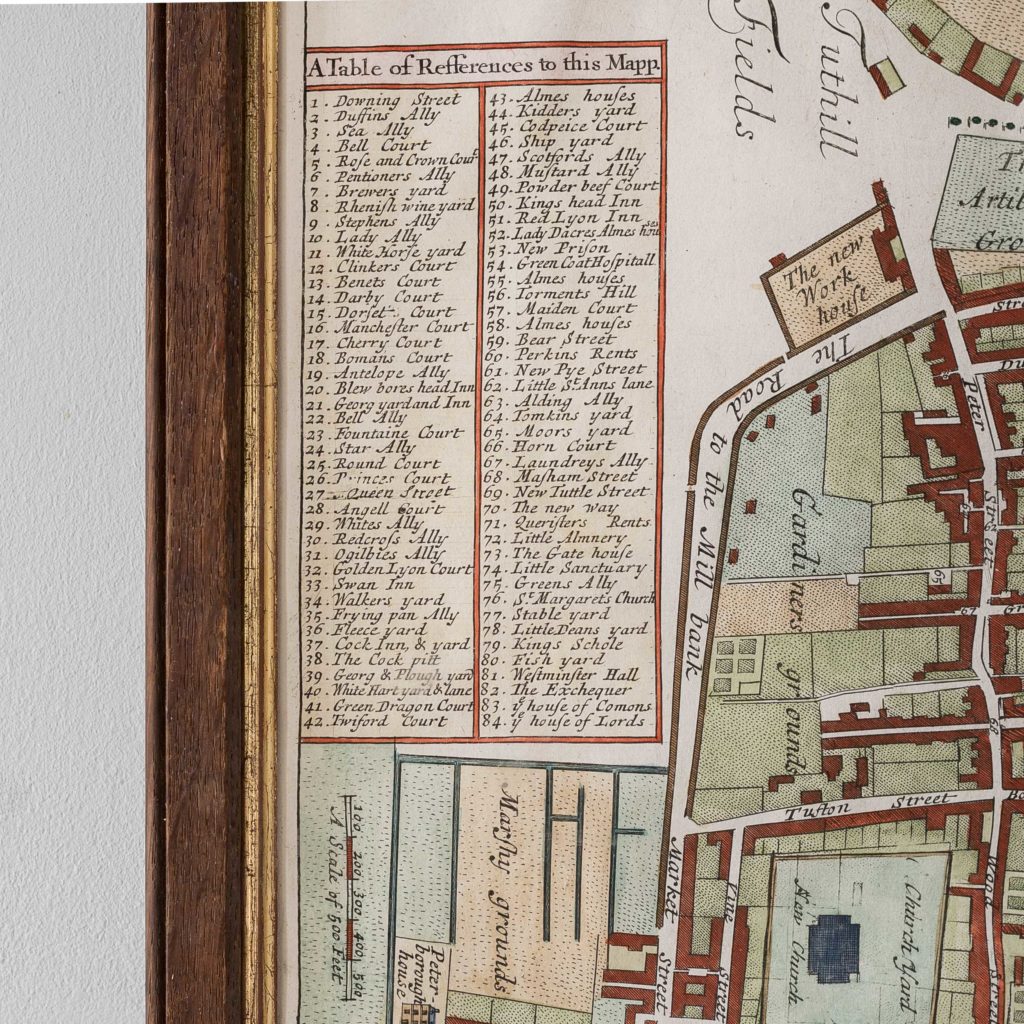 A Table of Refferences to this Mapp.
1. Downing Street
2. Duffins Ally
3. Sea Ally
4. Bell Court
5. Rose and Crown Court
6. Pentioners Ally
7. Brewers yard
8. Rhenish wine yard
9. Stephens Ally
10. Lady Ally
11. White Horse yard
12. Clinkers Court
13. Benets Court
14. Darby Court
15. Dorset Court
16. Manchester Court
17. Cherry Court
18. Bomans Court
19. Antelope Ally
20. Blew bores head Inn
21. Georg yard and Inn
22. Bell Ally
23. Fountaine Court
24. Star Ally
25. Round Court
26. Princes Court
27. Queen Street
28. Angell Court
29. Whites Ally
30. Redcross Ally
31. Ogilbies Ally
32. Golden Lyon Court
33. Swan Inn
34. Walkers yard
35. Frying pan Ally
36. Fleece yard
37. Cock Inn, & yard
38. The Cock pitt
39. Georg & Plough yard
40. White Hart yard & lane
41. Green Dragon Court
42. Twiford Court
43. Almes houses
44. Kidders yard
45. Codpeice Court
46. Ship yard
47. Scotfords Ally
48. Mustard Ally
49. Powder beef Court
50. Kings head Inn
51. Red Lyon Inn
52. Lady Dacres Almes houses
53. New Prison
54. Green Coat Hospitall
55. Almes houses
56. Torments Hill
57. Maiden Court
58. Almes houses
59. Bear Street
60. Perkins Rents
61. New Pye Street
62. Little St. Anns lane
63. Alding Ally
64. Tomkins yard
65. Moors yard
66. Horn Court
67. Laundreys Ally
68. Masham Street
69. New Tuttle Street
70. The new way
71. Queristers Rents
72. Little Almnery
73. The Gate house
74. Little Sanctuary
75. Greens Ally
76. St. Margarets Church
77. Stable yard
78. Little Deans yard
79. Kings Schole
80. Fish yard
81. Westminster Hall
82. The Exchequer
83. ye house of Comons
84. ye house of Lords
Tuthill
Fields
The new
Work
house
The Road to the Mill bank
Peter Street
Gardiners grounds
65
67
68
Tufton Street
Market Street
Vine Street
Wood Street
New Church
Church Yard
Marshy grounds
Peter-
borough
house
100 200 300 400 500
A Scale of 500 Feet